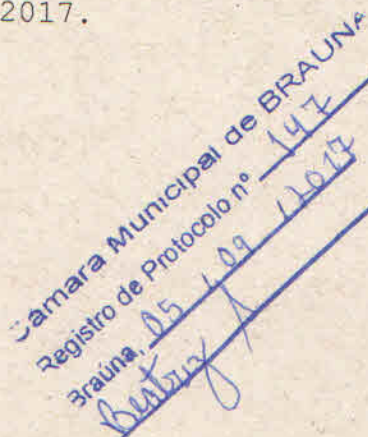 2017.
Câmara Municipal de BRAUNA
Registro de Protocolo nº 147
Braúna, 05 / 09 / 2017
Beatriz